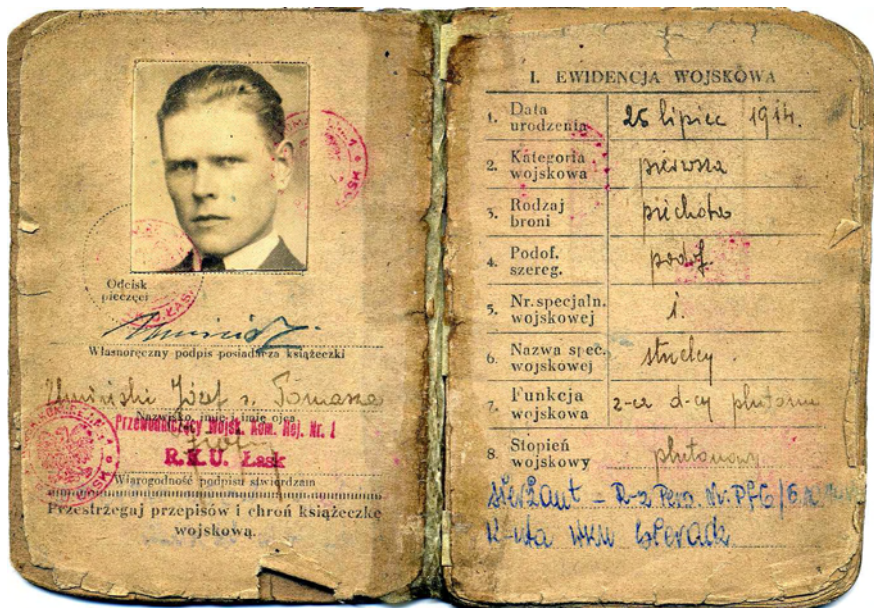 Odcisk
pieczęci
Własnoręczny podpis posiadacza książeczki
Umiński Józef s. Tomasza
Nazwisko, imię i imię ojca
Przewodniczący Wojsk. Kom. Rej. Nr. 1
R.K.U. Łask
Wiarogodność podpisu stwierdzam
Przestrzegaj przepisów i chroń książeczkę
wojskową.
I. EWIDENCJA WOJSKOWA
1. Data urodzenia 25 lipiec 1914.
2. Kategoria wojskowa pierwsza
3. Rodzaj broni piechota
4. Podof. szereg. podof.
5. Nr. specjaln. wojskowej 1.
6. Nazwa spec. wojskowej strzelcy.
7. Funkcja wojskowa z-ca d-cy plutonu
8. Stopień wojskowy plutonowy
sierżant - R-z Pers. Nr. PF6/
K-nta WKR Sieradz